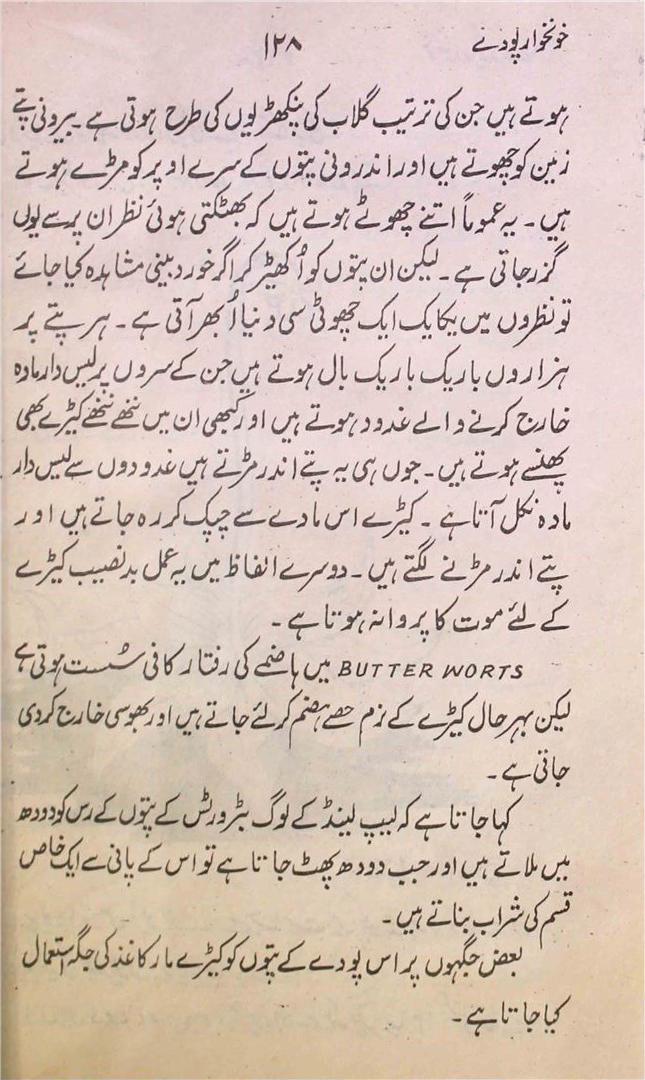 خونخوار پودے ۱۲۸
ہوتے ہیں جن کی ترتیب گلاب کی پنکھڑیوں کی طرح ہوتی ہے۔ بیرونی پتے
زمین کو چھوتے ہیں اور اندرونی پتوں کے سرے اوپر کو مڑے ہوتے
ہیں۔ یہ عموماً اتنے چھوٹے ہوتے ہیں کہ بھٹکتی ہوئی نظر ان پر سے یوں
گزر جاتی ہے۔ لیکن ان پتوں کو اُکھیڑ کر اگر خوردبینی مشاہدہ کیا جائے
تو نظروں میں یکایک ایک چھوٹی سی دنیا اُبھر آتی ہے۔ ہر پتے پر
ہزاروں باریک باریک بال ہوتے ہیں جن کے سروں پر لیس دار مادہ
خارج کرنے والے غدود ہوتے ہیں اور کبھی ان میں ننھے ننھے کیڑے بھی
پھنسے ہوتے ہیں۔ جوں ہی یہ پتے اندر مڑتے ہیں غدودوں سے لیس دار
مادہ نکل آتا ہے۔ کیڑے اس مادے سے چپک کر رہ جاتے ہیں اور
پتے اندر مڑنے لگتے ہیں۔ دوسرے الفاظ میں یہ عمل بدنصیب کیڑے
کے لئے موت کا پروانہ ہوتا ہے۔
BUTTER WORTS میں ہاضمے کی رفتار کافی سُست ہوتی ہے
لیکن بہر حال کیڑے کے نرم حصے ہضم کر لئے جاتے ہیں اور بھوسی خارج کر دی
جاتی ہے۔
کہا جاتا ہے کہ لیپ لینڈ کے لوگ بٹرورٹس کے پتوں کے رس کو دودھ
میں ملاتے ہیں اور جب دودھ پھٹ جاتا ہے تو اس کے پانی سے ایک خاص
قسم کی شراب بناتے ہیں۔
بعض جگہوں پر اس پودے کے پتوں کو کیڑے مار کاغذ کی جگہ استعمال
کیا جاتا ہے۔